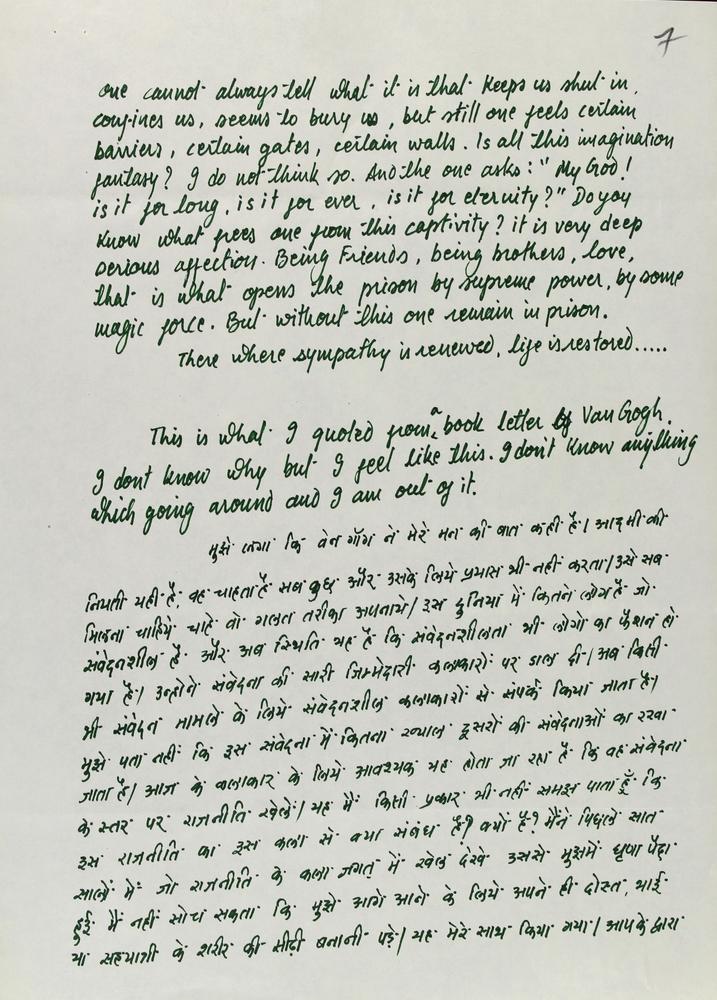 7
one cannot always tell what it is that keeps us shut in,
confines us, seems to bury us, but still one feels certain
barriers, certain gates, certain walls. Is all this imagination
fantasy? I do not think so. And the one asks: "My God!
is it for long, is it for ever, is it for eternity?" Do you
know what frees one from this captivity? it is very deep
serious affection. Being Friends, being brothers, love,
that is what opens the prison by supreme power, by some
magic force. But without this one remain in prison.
There where sympathy is renewed, life is restored.....
This is what I quoted from a book letter of Van Gogh.
I dont know why but I feel like this. I don't know anything
which going around and I am out of it.
मुझे लगा कि वेन गॉग ने मेरे मन की बात कही है। आदमी की
नियती यही है, वह चाहता है सब कुछ और उसके लिये प्रयास भी नहीं करता। उसे सब
मिलना चाहिये चाहे वो गलत तरीका अपनाये। इस दुनिया में कितने लोग है जो
संवेदनशील है और अब स्थिति यह है कि संवेदनशीलता भी लोगो का फैशन हो
गया है। उन्होने संवेदना की सारी जिम्मेदारी कलाकारों पर डाल दी। अब किसी
भी संवेदन मामले के लिये संवेदनशील कलाकारों से संपर्क किया जाता है।
मुझे पता नहीं कि इस संवेदना में कितना ख्याल दूसरों की संवेदनाओं का रखा
जाता है। आज के कलाकार के लिये आवश्यक यह होता जा रहा है कि वह संवेदना
के स्तर पर राजनीति खेले। यह मैं किसी प्रकार भी नहीं समझ पाता हूँ कि
इस राजनीति का इस कला से क्या संबंध है? क्यों है? मैंने पिछले सात
सालों में जो राजनीति के कला जगत् में खेल देखे उससे मुझमें घृणा पैदा
हुई मैं नहीं सोच सकता कि मुझे आगे आने के लिये अपने ही दोस्त, भाई
या सहयात्री के शरीर की सीढ़ी बनानी पड़े। यह मेरे साथ किया गया। आपके द्वारा